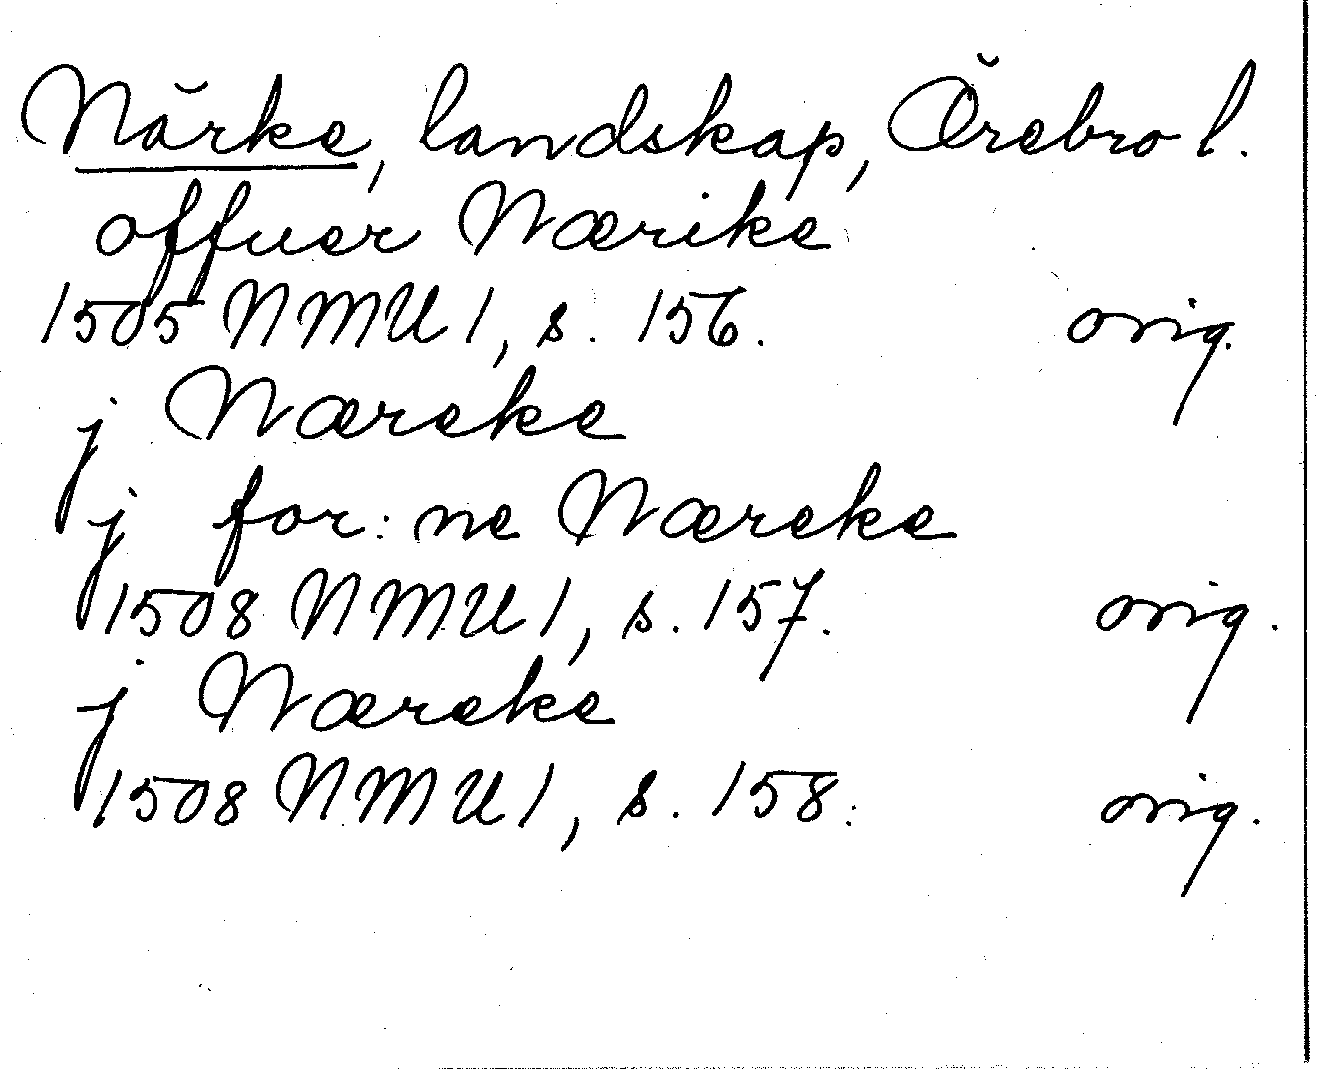 Närke, landskap, Örebro l.
offuer Nærike
1505 NMU 1, s. 156. orig.
j Næreke
j for: ne Næreke
1508 NMU 1, s. 157. orig.
j Næreke
1508 NMU 1, s. 158. orig.